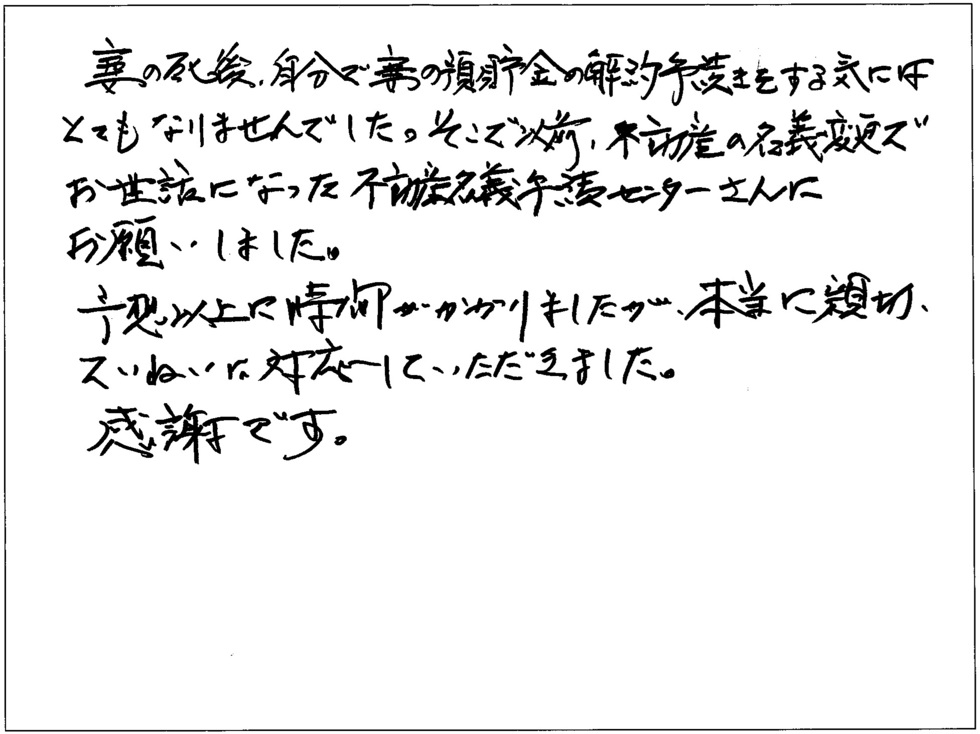 妻の死後、自分で妻の預貯金の解約手続きをする気には
とてもなりませんでした。そこで以前、不動産の名義変更で
お世話になった不動産名義手続センターさんに
お願いしました。
予想以上に時間がかかりましたが、本当に親切、
ていねいに対応していただきました。
感謝です。